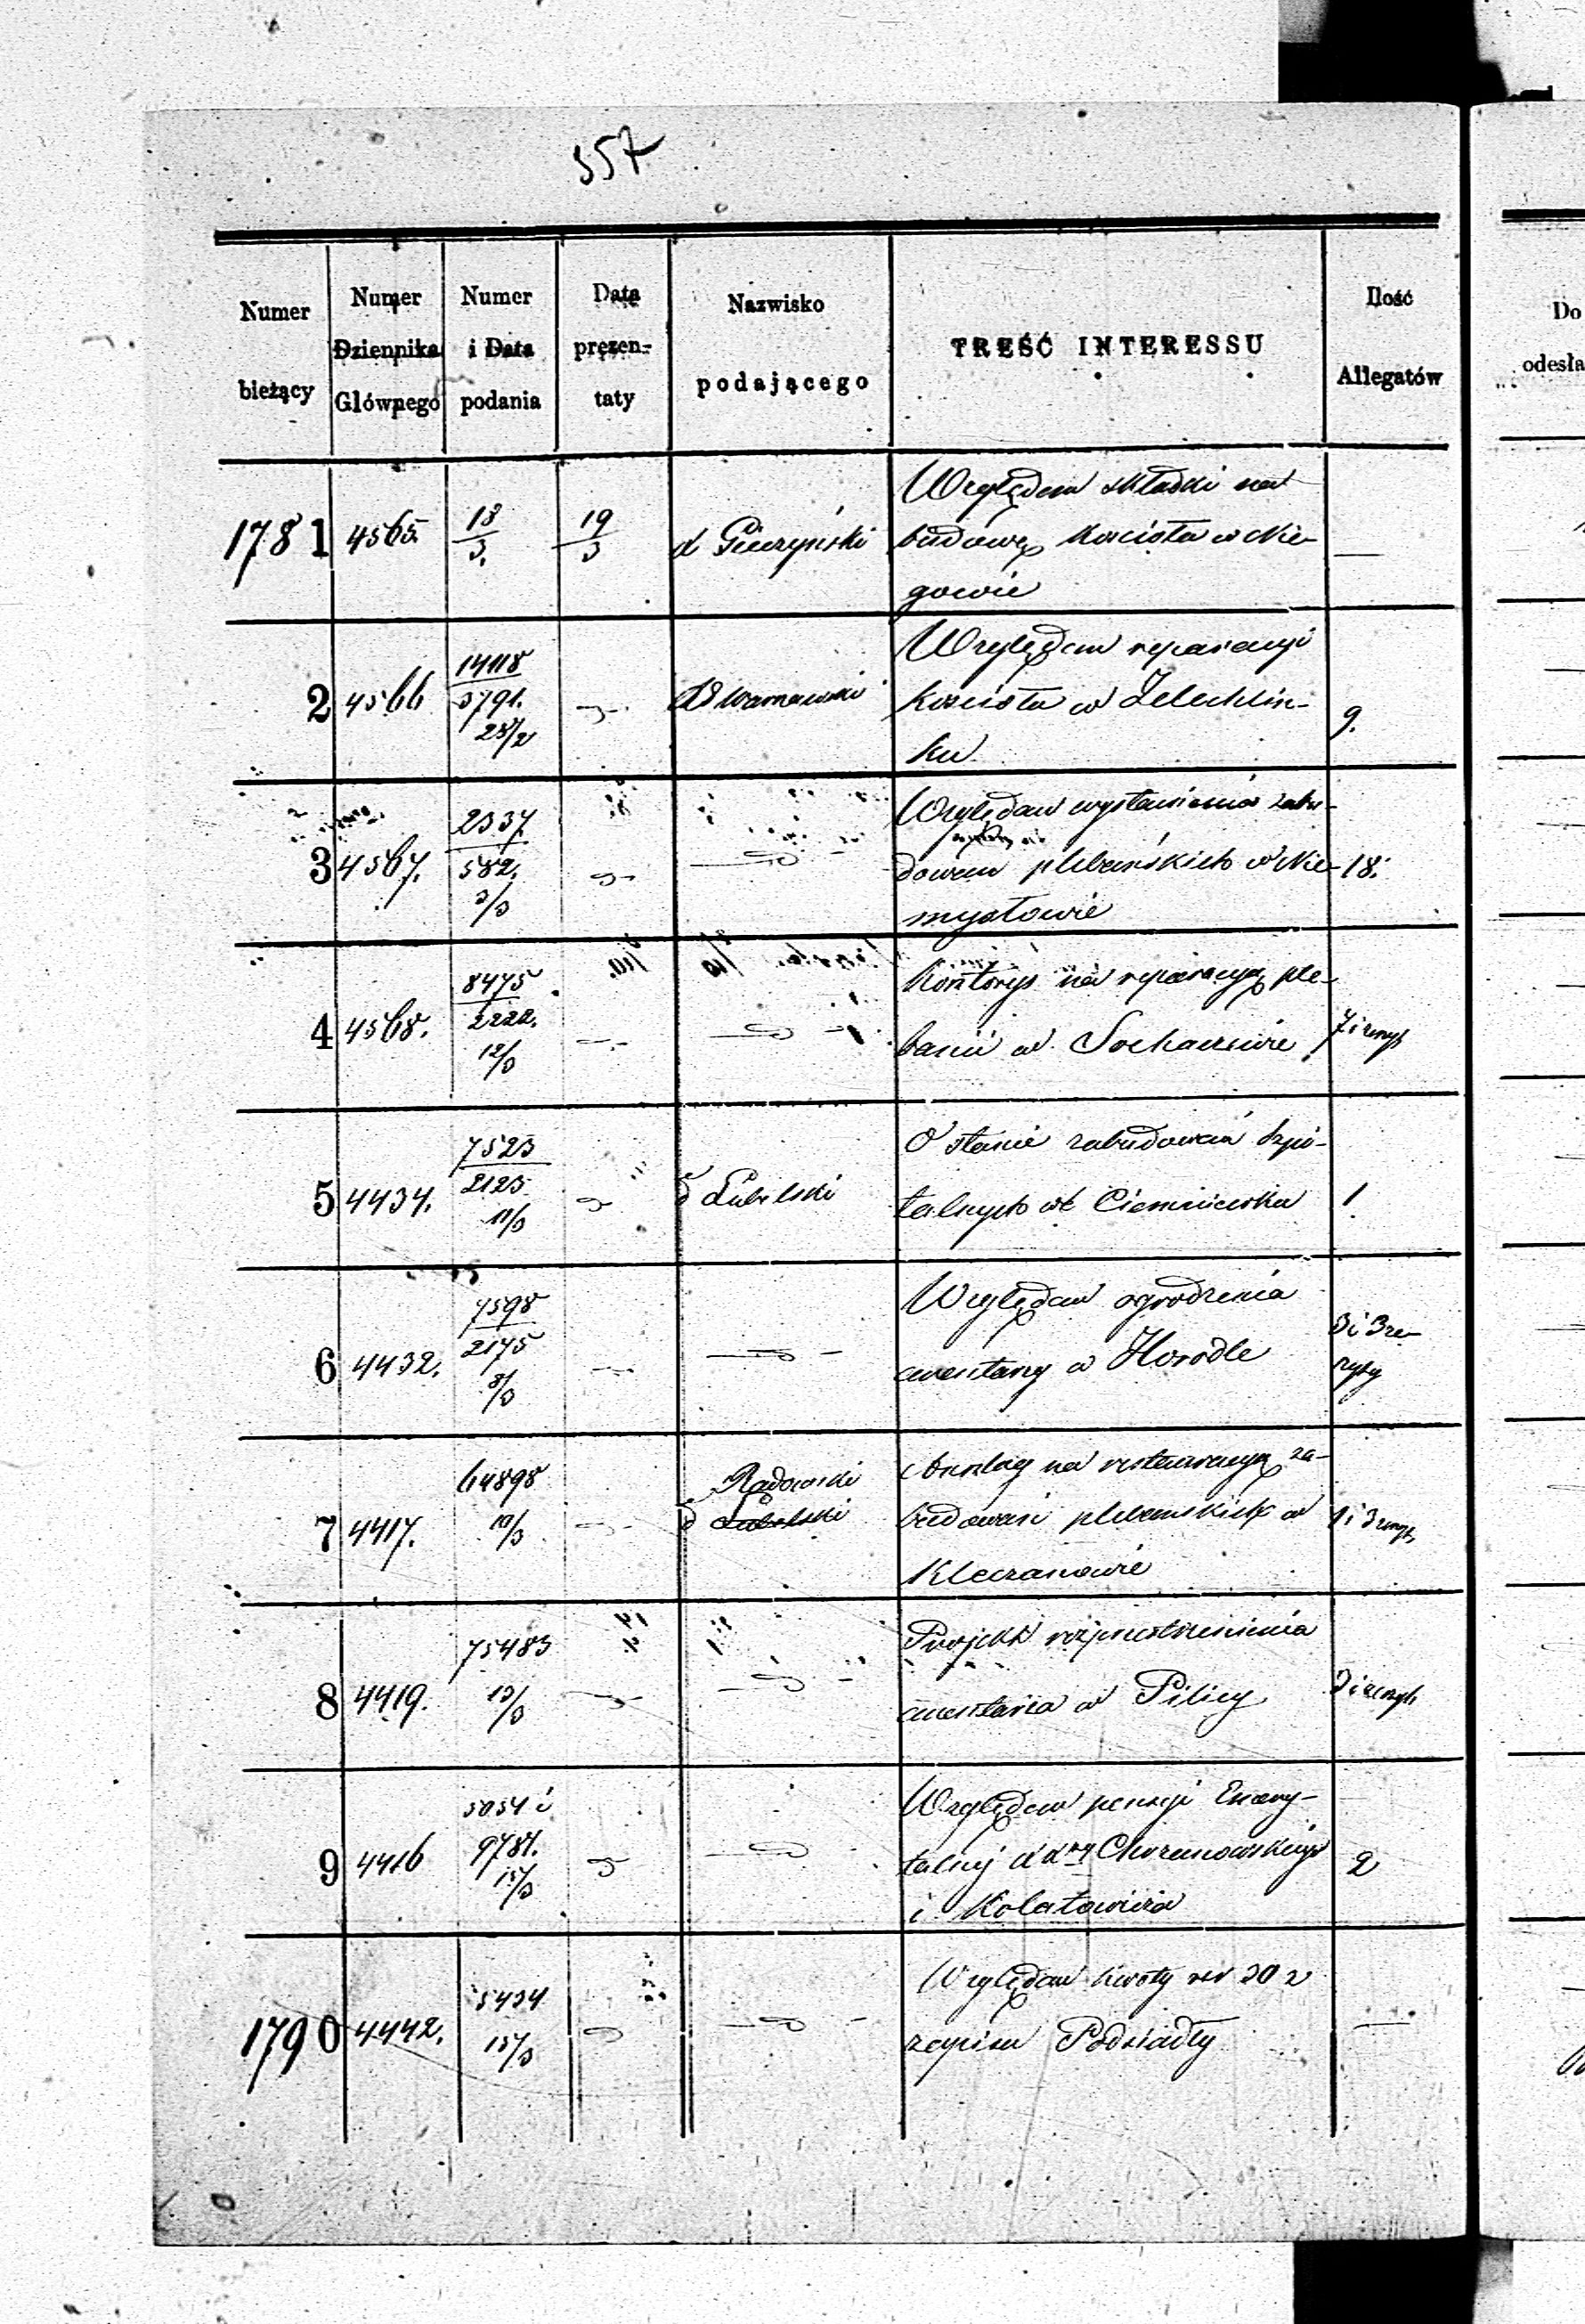 357
Numer bieżący | Numer Dziennika Głównego | Numer i Data podania | Data prezen- taty | Nazwisko podającego | TREŚĆ INTERESSU | Ilość Allegatów
Do
odesła
1781 | 4565. | 18/3. | 19/3 | Pieczyński | Względem składki na
budowę kościoła w Nie-
gowie | —
2 | 4566 | 14118
3791.
28/2 | Warszawski | Względem reparacyi
kościoła w Żelechlin-
ku | 9.
3 | 4567. | 2337
582.
3/3 | Względem wystawienia zabu-
dowań plebańskich w Nie-
mysłowie | 18.
4 | 4568. | 8475
2222.
12/3 | Kosztorys na reparacyą ple-
banii w Sochaczewie | 7 i zeszyt
5 | 4434. | 7523
2123
11/3 | Lubelski | O stanie zabudowań szpi-
talnych w | 1
6 | 4432. | 7598
2175
8/3 | Względem ogrodzenia
cmentarzy w Horodle | 3 i 3 ze-
szyty
7 | 4417. | 64898
10/3 | Radomski
Lubelski | Anszlag na restauracyą za-
budowań plebańskich w
Kleczanowie | 1 i 3 zeszyt.
8 | 4419. | 75483
13/3 | Projekt rozprzestrzenienia
cmentarza w Pilicy | 3 i zeszyt
9 | 4416 | 5054 i
9781.
15/3 | Względem pensyi Emery-
talnej Chrzanowskiego
i Kołatowicza | 2
1790 | 4442. | 5434
15/3 | Względem kwoty rsr 30 z
zapisu Podsiadły | —